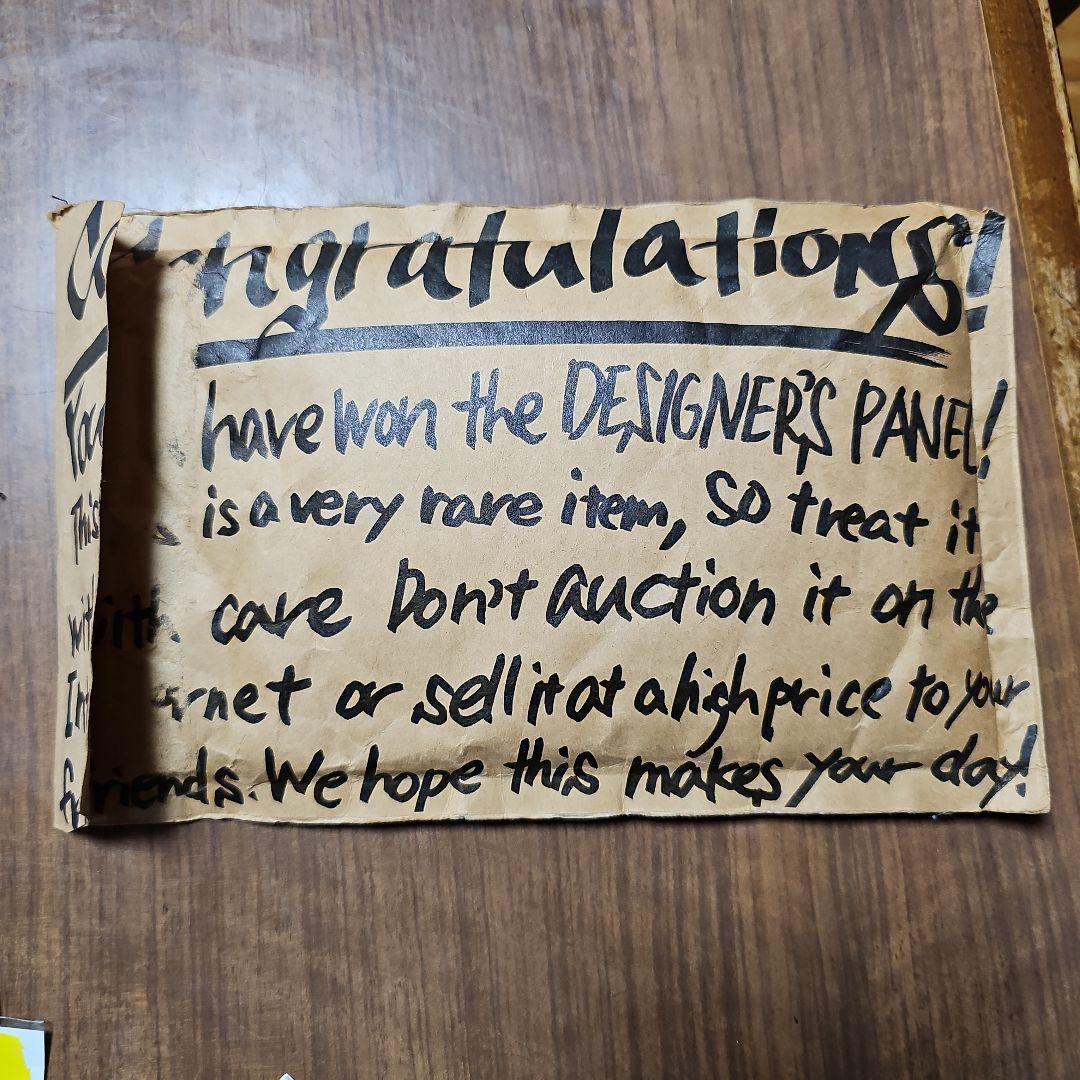 Congratulations!
You have won the DESIGNER'S PANEL!
This is a very rare item, so treat it
with care Don't auction it on the
Internet or sell it at a high price to your
friends. We hope this makes your day!